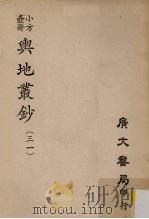 小方壺齋
輿地叢鈔
(三一)
廣文書局印行